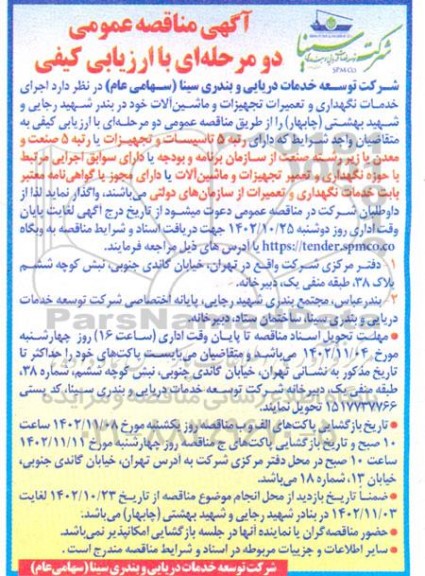 شرکت سینا
SPMCO
آگهی مناقصه عمومی
دو مرحله‌ای با ارزیابی کیفی
شرکت توسعه خدمات دریایی و بندری سینا (سهامی عام) در نظر دارد اجرای
خدمات نگهداری و تعمیرات تجهیزات و ماشین‌آلات خود در بندر شهید رجایی و
شهید بهشتی (چابهار) را از طریق مناقصه عمومی دو مرحله‌ای با ارزیابی کیفی به
متقاضیان واجد شرایط که دارای رتبه ۵ تاسیسات و تجهیزات یا رتبه ۵ صنعت و
معدن یا زیررشته صنعت از سازمان برنامه و بودجه یا دارای سوابق اجرایی مرتبط
با حوزه نگهداری و تعمیر تجهیزات و ماشین‌آلات یا دارای مجوز یا گواهی‌نامه معتبر
بابت خدمات نگهداری و تعمیرات از سازمان‌های دولتی می‌باشند، واگذار نماید لذا از
داوطلبان شرکت در مناقصه عمومی دعوت میشود از تاریخ درج آگهی لغایت پایان
وقت اداری روز دوشنبه ۱۴۰۲/۱۰/۲۵ جهت دریافت اسناد و شرایط مناقصه به وبگاه
https://tender.spmco.co یا آدرس های ذیل مراجعه فرمایند.
۱ دفتر مرکزی شرکت واقع در تهران، خیابان گاندی جنوبی، نبش کوچه ششم
پلاک ۳۸، طبقه منفی یک، دبیرخانه.
۲ بندرعباس، مجتمع بندری شهید رجایی، پایانه اختصاصی شرکت توسعه خدمات
دریایی و بندری سینا، ساختمان ستاد، دبیرخانه.
• مهلت تحویل اسناد مناقصه تا پایان وقت اداری (ساعت ۱۶) روز چهارشنبه
مورخ ۱۴۰۲/۱۱/۰۴ می‌باشد و متقاضیان می‌بایست پاکت‌های خود را حداکثر تا
تاریخ مذکور به نشانی تهران، خیابان گاندی جنوبی، نبش کوچه ششم، شماره ۳۸،
طبقه منفی یک، دبیرخانه شرکت توسعه خدمات دریایی و بندری سینا، کد پستی
۱۵۱۷۷۳۷۷۶۶ تحویل نمایند.
• تاریخ بازگشایی پاکت‌های الف و ب مناقصه روز یکشنبه مورخ ۱۴۰۲/۱۱/۰۸ ساعت
۱۰ صبح و تاریخ بازگشایی پاکت‌های ج مناقصه روز چهارشنبه مورخ ۱۴۰۲/۱۱/۱۱
ساعت ۱۰ صبح در محل دفتر مرکزی شرکت به آدرس تهران، خیابان گاندی جنوبی،
خیابان ۱۳، شماره ۱۸ می‌باشد.
• ضمناً تاریخ بازدید از محل انجام موضوع مناقصه از تاریخ ۱۴۰۲/۱۰/۲۳ لغایت
۱۴۰۲/۱۱/۰۳ در بنادر شهید رجایی و شهید بهشتی (چابهار) می‌باشد.
• حضور مناقصه‌گران یا نماینده آنها در جلسه بازگشایی امکانپذیر نمی‌باشد.
• سایر اطلاعات و جزییات مربوطه در اسناد و شرایط مناقصه مندرج است.
شرکت توسعه خدمات دریایی و بندری سینا (سهامی عام)